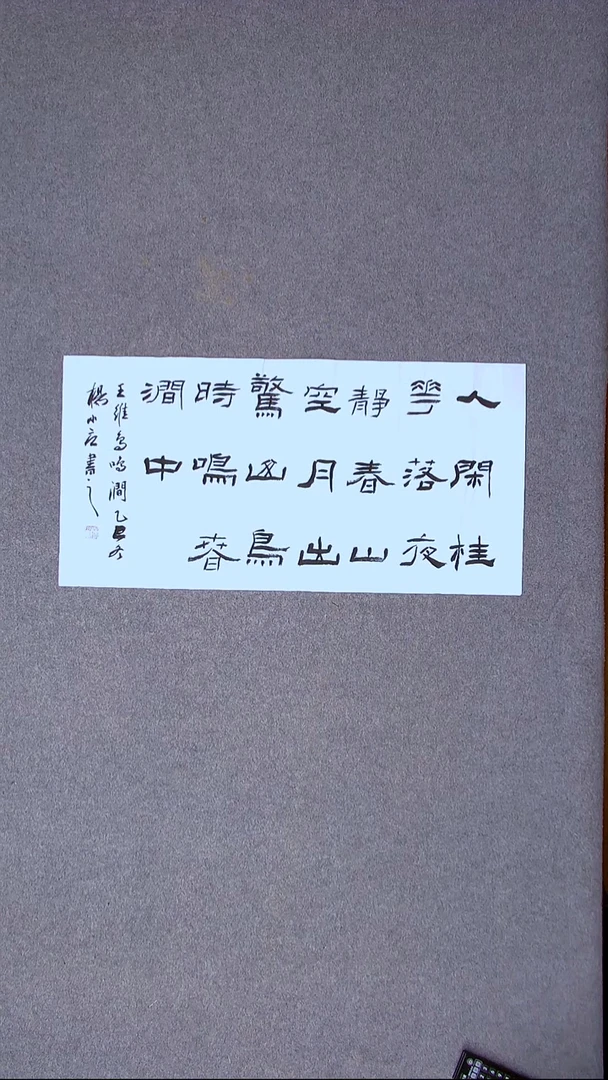 人閑桂
花落夜
靜春山
空月出
驚山鳥
時鳴春
澗中
王維鳥鳴澗乙巳冬
楊小京書之